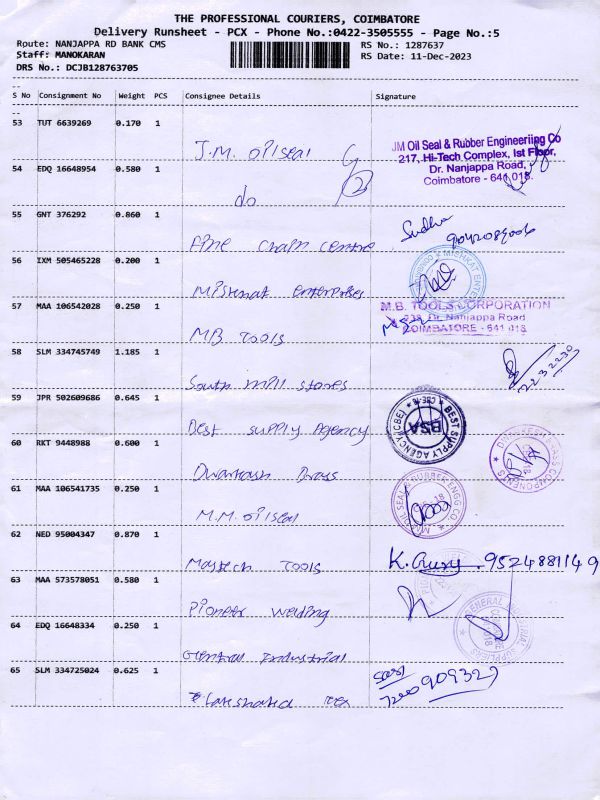 THE PROFESSIONAL COURIERS, COIMBATORE
Delivery Runsheet - PCX - Phone No.:0422-3505555 - Page No.:5
Route: NANJAPPA RD BANK CMS RS No.: 1287637
Staff: MANOKARAN RS Date: 11-Dec-2023
DRS No.: DCJB128763705
S No Consignment No Weight PCS Consignee Details Signature
53 TUT 6639269 0.170 1
J.M. oilseal
JM Oil Seal & Rubber Engineeriing Co
217, Hi-Tech Complex, Ist Floor,
Dr. Nanjappa Road,
Coimbatore - 641 018.
54 EDQ 16648954 0.580 1
do 2
55 GNT 376292 0.860 1
Fine chain centre
Sudha
56 IXM 505465228 0.200 1
enterprises
57 MAA 106542028 0.250 1
MB Tools
M.B. TOOLS CORPORATION
238, Dr. Nanjappa Road
COIMBATORE - 641 018
58 SLM 334745749 1.185 1
South mill stores
2232230
59 JPR 502609686 0.645 1
Best supply Agency
BEST SUPPLY AGENCY (CBE)
BSA
60 RKT 9448988 0.600 1
Brass
61 MAA 106541735 0.250 1
M.M. oilseal
62 NED 95004347 0.870 1
Maytech Tools
9524881149
63 MAA 573578051 0.580 1
Pioneer welding
64 EDQ 16648334 0.250 1
General Industrial
65 SLM 334725024 0.625 1
Tex